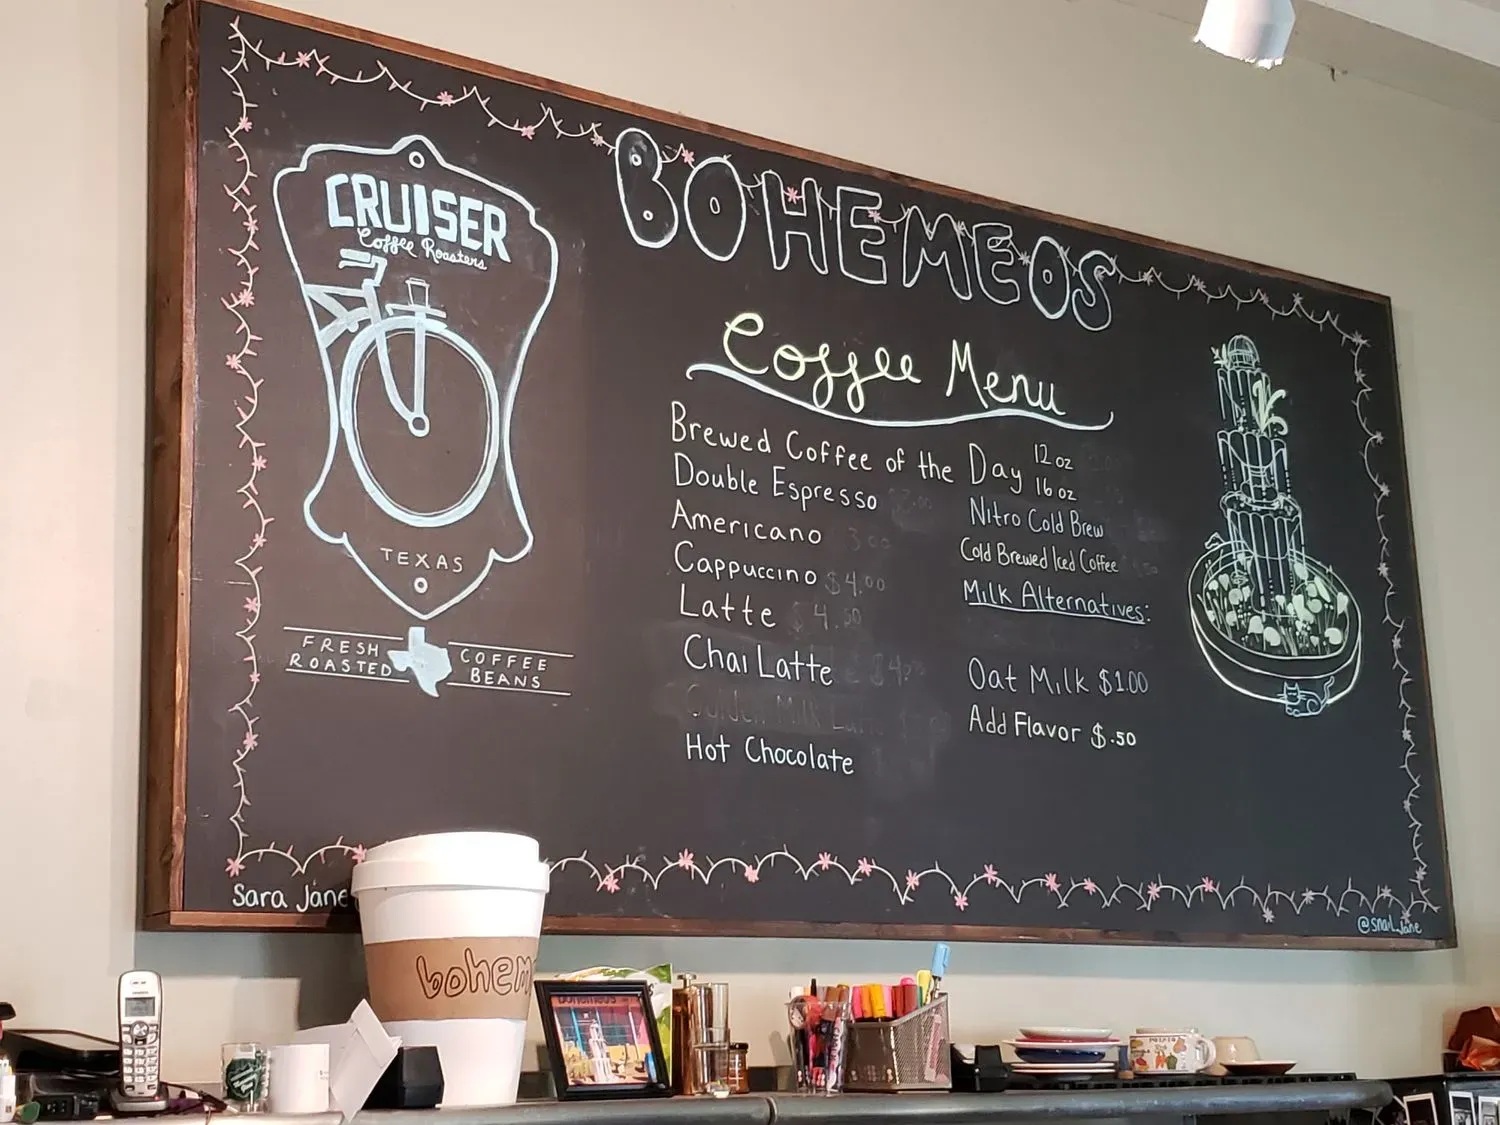 BOHEMEOS
CRUISER
Coffee Roasters
TEXAS
FRESH ROASTED
COFFEE BEANS
Coffee Menu
Brewed Coffee of the Day 12 oz
16 oz
Double Espresso
Americano 3.00
Cappuccino $4.00
Latte $4.50
Chai Latte
Hot Chocolate
Nitro Cold Brew
Cold Brewed Iced Coffee
Milk Alternatives:
Oat Milk $1.00
Add Flavor $.50
Sara Jane
@snail_jane
bohem
bohemeos
POTATO